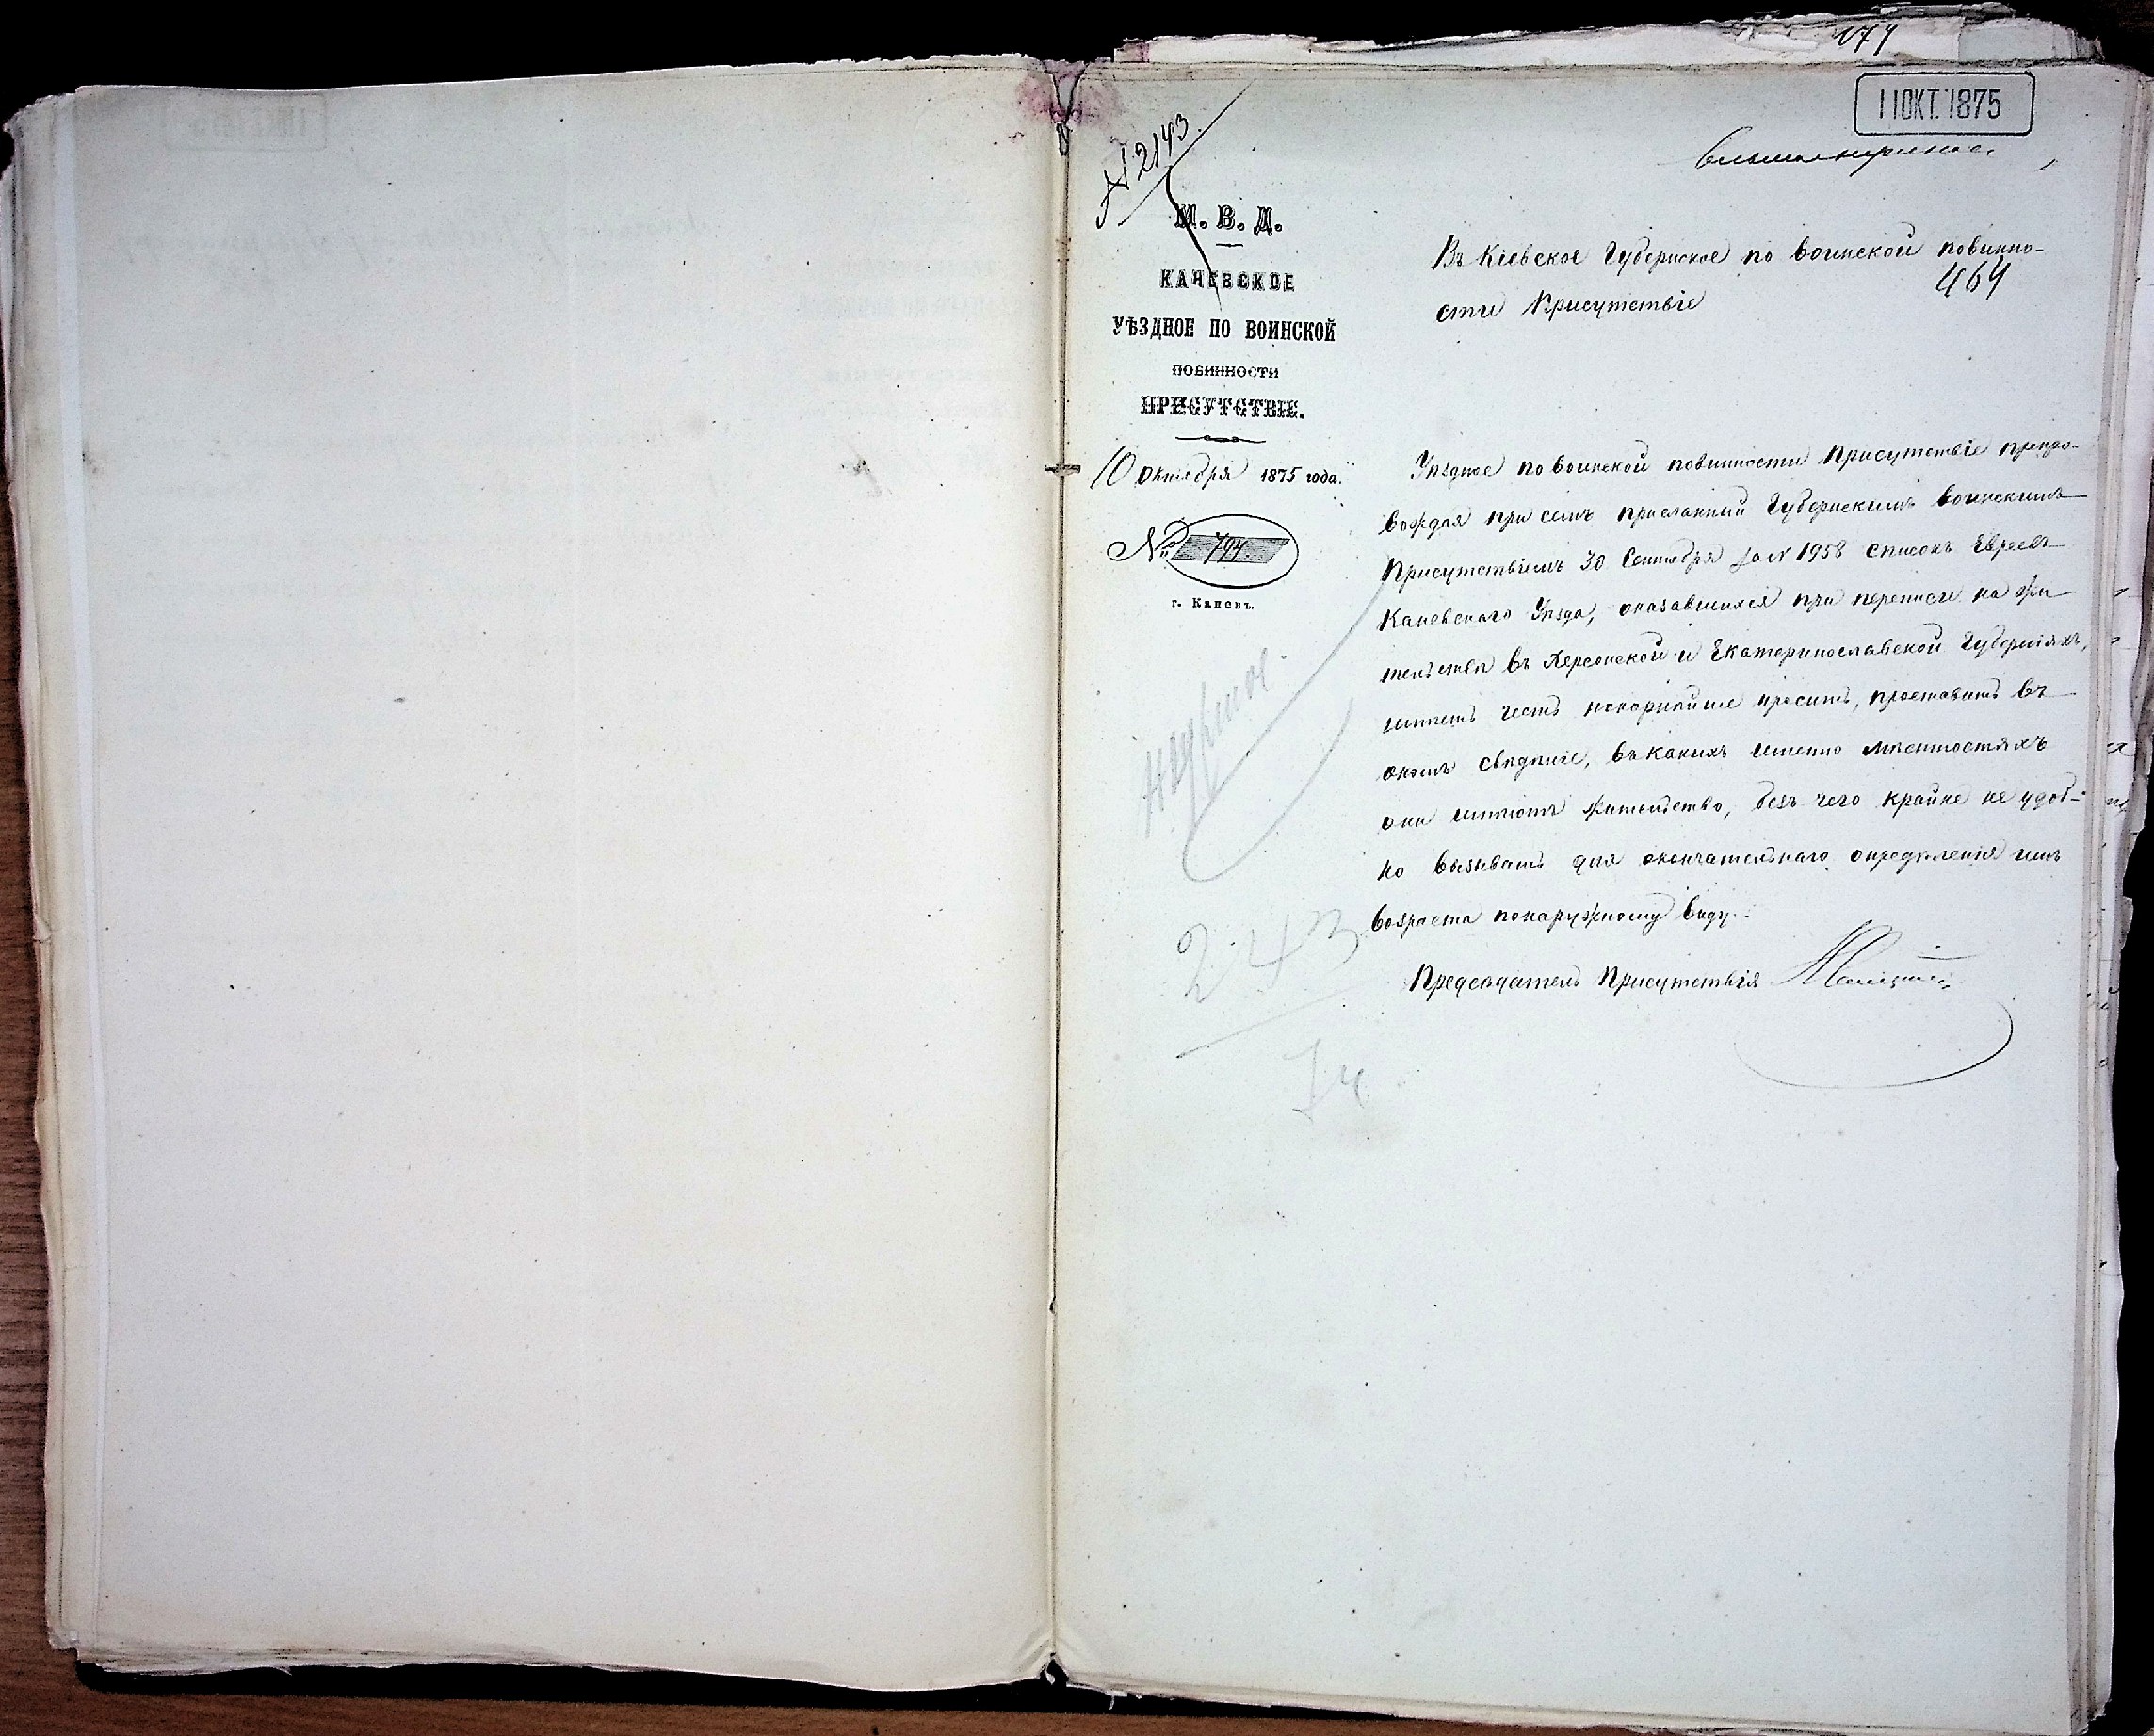 174
11 ОКТ. 1875
№ 2143.
М. В. Д.
КАНЕВСКОЕ
УѢЗДНОЕ ПО ВОИНСКОЙ
ПОВИННОСТИ
ПРИСУТСТВІЕ.
10 Октября 1875 года.
№ 794
г. Каневъ.
Въ Кіевское Губернское по воинской повинно-
464
сти Присутствіе
Уѣздное по воинской повинности Присутствіе препро-
вождая при семъ присланный Губернскимъ воинскимъ
Присутствіемъ 30 Сентября за № 1958 списокъ Евреевъ
Каневскаго Уѣзда, оказавшихся при переписи на жи-
тельствѣ въ Херсонской и Екатеринославской Губерніяхъ,
имѣетъ честь покорнѣйше просить, проставить въ
ономъ свѣдѣніе, въ какихъ именно мѣстностяхъ
они имѣютъ жительство, безъ чего крайне не удоб-
но вызывать для окончательнаго опредѣленія имъ
возраста по наружному виду.
Предсѣдатель Присутствія
243
74